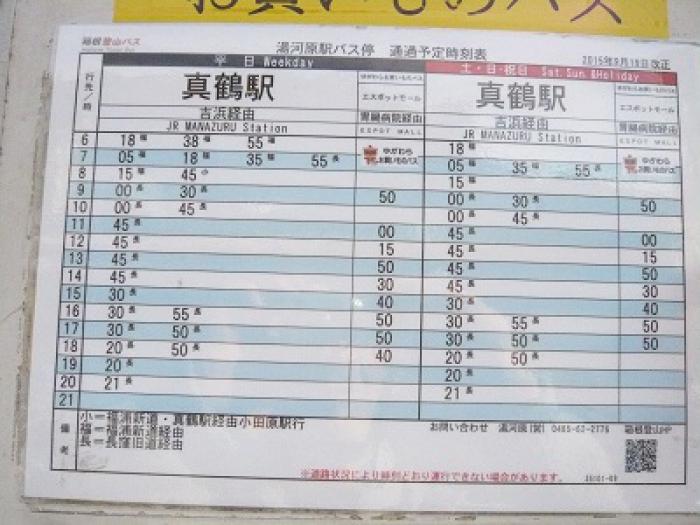 お買いものバス
箱根登山バス
湯河原駅バス停 通過予定時刻表
2015年9月19日 改正
行先/時
平 日 Weekday
土・日・祝日 Sat.Sun &Holiday
真鶴駅 エスポットモール 真鶴駅 エスポットモール
吉浜経由 胃腸病院経由 吉浜経由 胃腸病院経由
JR MANAZURU Station ESPOT MALL JR MANAZURU Station ESPOT MALL
6 18福 38福 55福 18福
7 05福 18福 35福 55長 ゆがわらお買いものバス 05福 35福 55長 ゆがわらお買いものバス
8 15福 45小 15福
9 00長 30長 50 00長 30長 50
10 00長 45長 00長 45長
11 45長 00 45長 00
12 45長 15 45長 15
13 45長 50 45長 50
14 45長 30 45長 30
15 30長 40 30長 40
16 30長 55長 50 30長 55長 50
17 30長 50長 50 30長 50長 50
18 20長 50長 40 20長 50長
19 20長 20長
20 21長 21長
21
備考
小=福浦新道・真鶴駅経由小田原駅行
福=福浦新道経由
長=長窪旧道経由
お問い合わせ 湯河原(営) 0465-62-2776 箱根登山HP
※道路状況により時刻どおり運行できない場合があります。